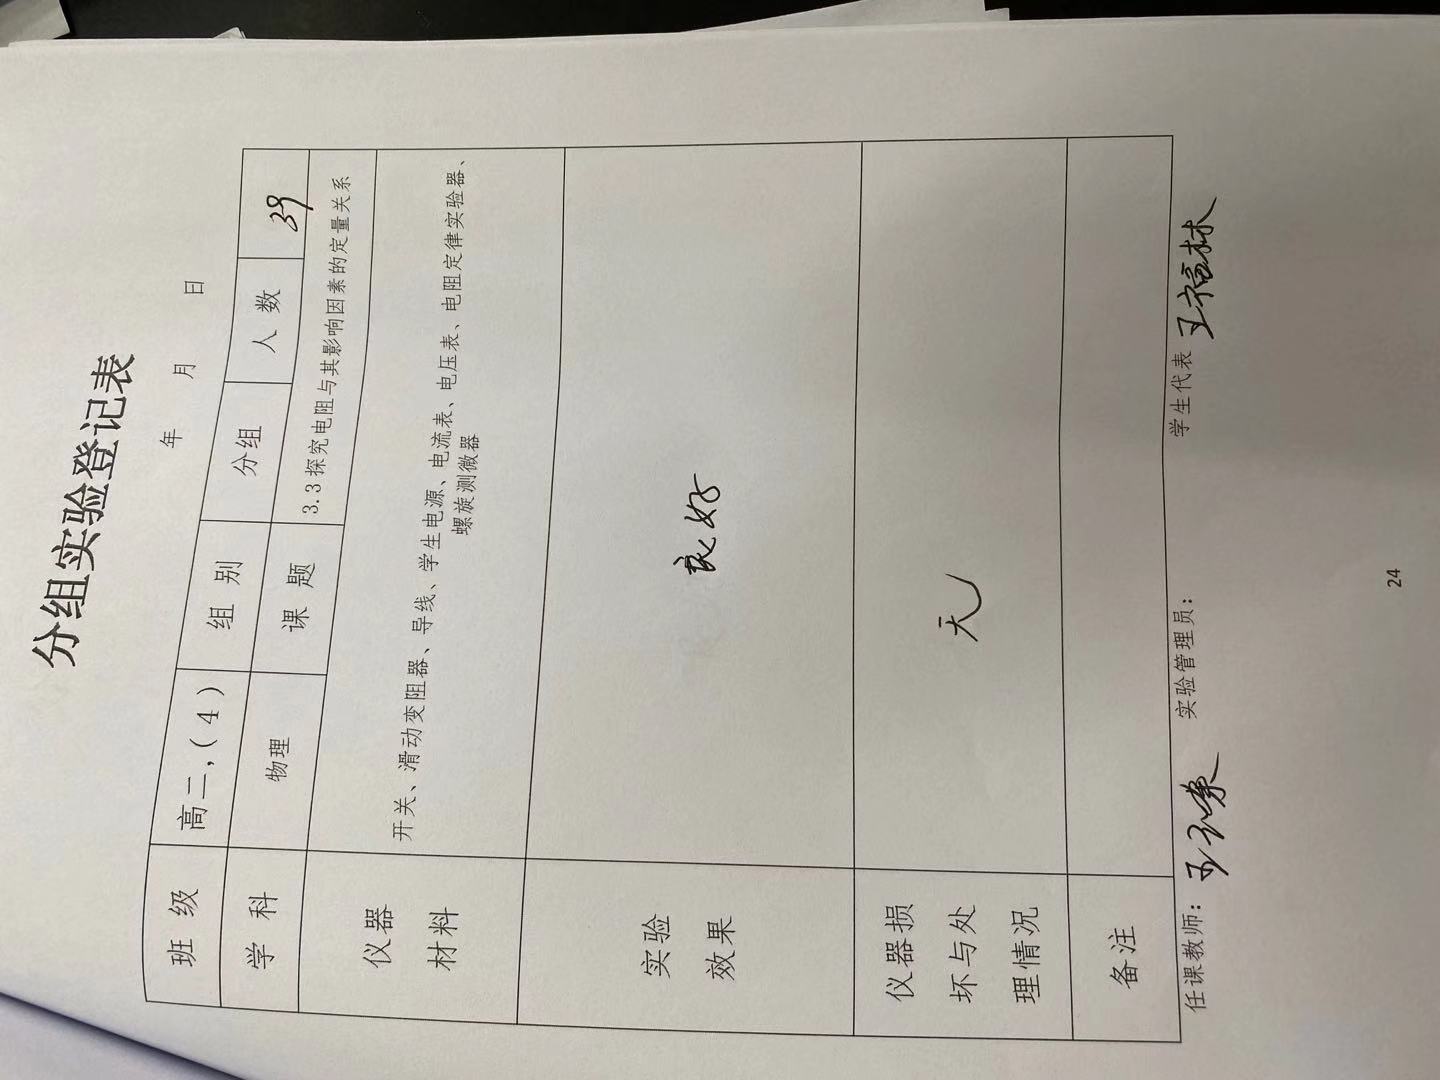 分组实验登记表
年 月 日
班 级 高二,(4) 组 别 分组 人 数 39
学 科 物理 课 题 3.3探究电阻与其影响因素的定量关系
仪器
材料
开关、滑动变阻器、导线、学生电源、电流表、电压表、电阻定律实验器、
螺旋测微器
实验
效果
良好
仪器损
坏与处
理情况
无
备注
任课教师: 实验管理员: 学生代表 王福林
24